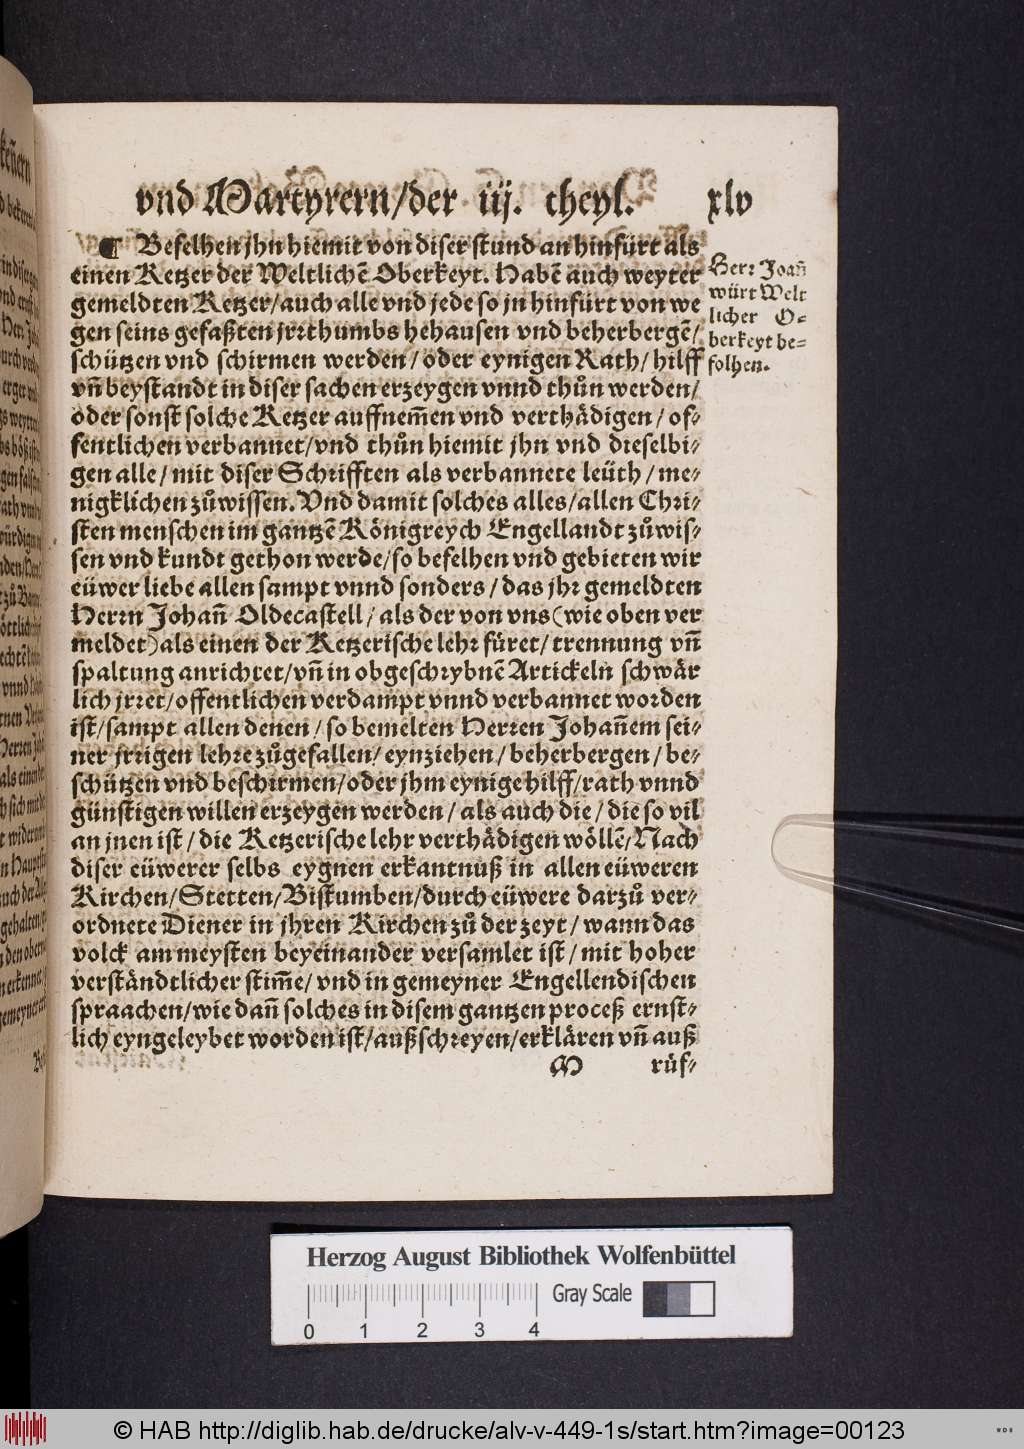 vnd Martyrern/der iij. theyl. xlv
¶ Befelhen jhn hiemit von diser stund an hinfürt als
einen Ketzer der Weltlichē Oberkeyt. Habē auch weyter
gemeldten Ketzer/auch alle vnd jede so jn hinfürt von we
gen seins gefaßten jrrthumbs behausen vnd beherbergē/
schützen vnd schirmen werden/oder eynigen Rath/hilff
vn̄ beystandt in diser sachen erzeygen vnnd thůn werden/
oder sonst solche Ketzer auffnem̄en vnd verthädigen/of-
fentlichen verbannet/vnd thůn hiemit jhn vnd dieselbi-
gen alle/mit diser Schrifften als verbannete leüth/me-
nigklichen zůwissen. Vnd damit solches alles/allen Chri-
sten menschen im gantzē Königreych Engellandt zůwis-
sen vnd kundt gethon werde/so befelhen vnd gebieten wir
eüwer liebe allen sampt vnnd sonders/das jhr gemeldten
Herrn Johan̄ Oldecastell/als der von vns(wie oben ver
meldet)als einen der Ketzerische lehr füret/trennung vn̄
spaltung anrichtet/vn̄ in obgeschrybnē Artickeln schwär
lich jrret/offentlichen verdampt vnnd verbannet worden
ist/sampt allen denen/so bemelten Herren Johan̄em sei-
ner jrrigen lehre zůgefallen/eynziehen/beherbergen/be-
schützen vnd beschirmen/oder jhm eynige hilff/rath vnnd
günstigen willen erzeygen werden/als auch die/die so vil
an jnen ist/die Ketzerische lehr verthädigen wöllē/Nach
diser eüwerer selbs eygnen erkantnuß in allen eüweren
Kirchen/Stetten/Bistumben/durch eüwere darzů ver-
ordnete Diener in jhren Kirchen zů der zeyt/wann das
volck am meysten beyeinander versamlet ist/mit hoher
verständtlicher stim̄e/vnd in gemeyner Engellendischen
spraachen/wie dan̄ solches in disem gantzen proceß ernst-
lich eyngeleybet worden ist/außschreyen/erklären vn̄ auß
M rüf-
Herr Joan̄
würt Welt
licher O-
berkeyt be-
folhen.
Herzog August Bibliothek Wolfenbüttel
Gray Scale
0 1 2 3 4
© HAB http://diglib.hab.de/drucke/alv-v-449-1s/start.htm?image=00123